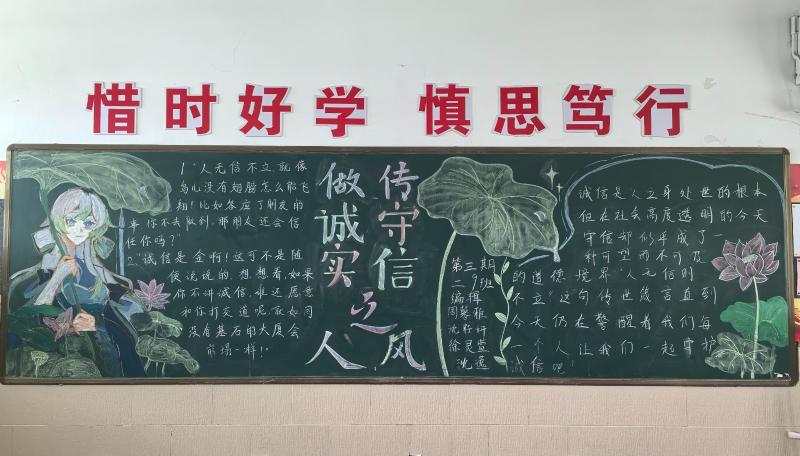 惜时好学 慎思笃行
1."人无信不立就像
鸟儿没有翅膀怎么能飞
翔!比如答应了朋友的
事,你不去做到,那朋友还会信
任你吗?"
2."诚信是金啊!这可不是随
便说说的,想想看,如果
你不讲诚信,谁还愿意
和你打交道呢,就如同
没有基石的大厦会
前塌一样!"
做诚实之人
传守信之风
第三期
二9班
编辑
沈逸
诚信是人立身处世的根本
但在社会高度透明的今天
守信却似乎成了一
种可望而不可及
的道德境界"人无信则
不立"这句传世箴言直到
今天仍在警醒着我们每
一个人 让我们一起守护
诚信吧!